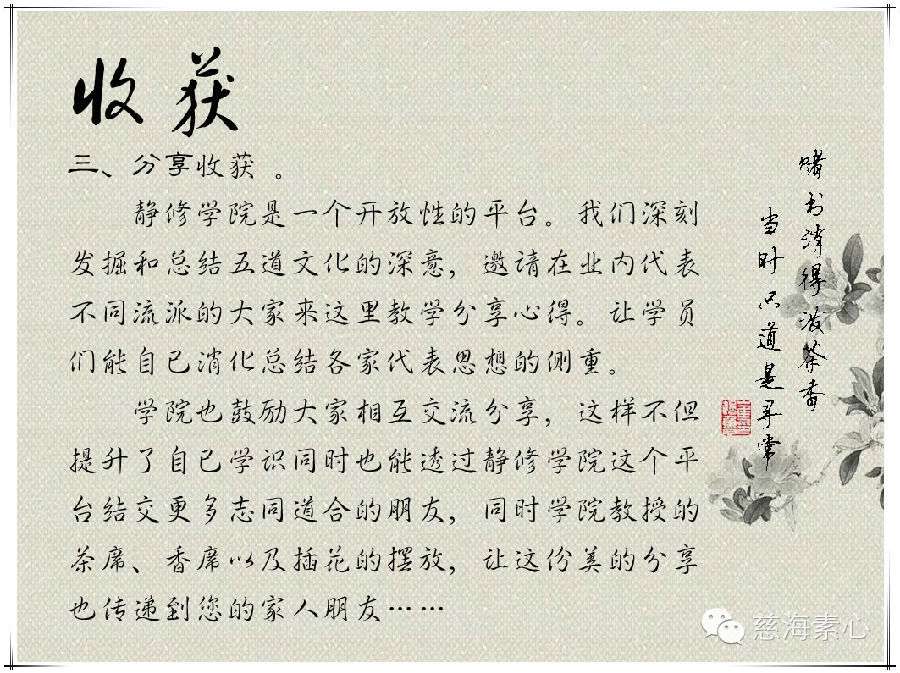 收获
三、分享收获。
静修学院是一个开放性的平台。我们深刻
发掘和总结五道文化的深意，邀请在业内代表
不同流派的大家来这里教学分享心得。让学员
们能自已消化总结各家代表思想的侧重。
学院也鼓励大家相互交流分享，这样不但
提升了自已学识同时也能透过静修学院这个平
台结交更多志同道合的朋友，同时学院教授的
茶席、香席以及插花的摆放，让这份美的分享
也传递到您的家人朋友……
赌书消得泼茶香
当时只道是寻常
慈海素心